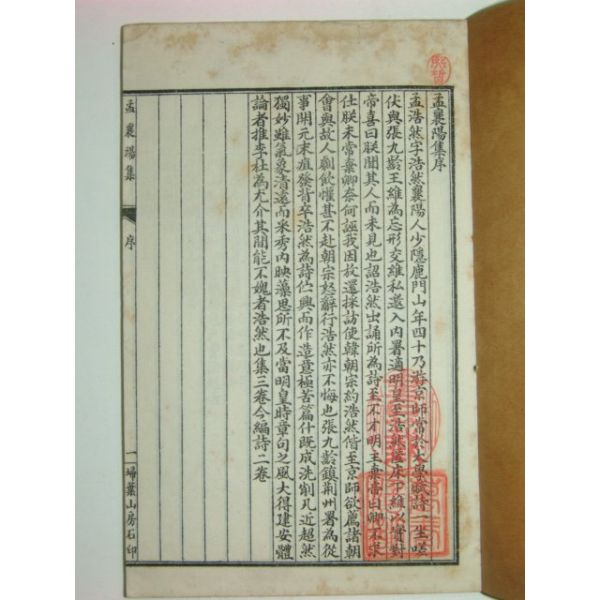 孟襄陽集序
孟浩然字浩然襄陽人少隱鹿門山年四十乃游京師常於太學賦詩一坐嗟
伏與張九齡王維為忘形交維私邀入內署適明皇至浩然匿床下維以實對
帝喜曰朕聞其人而未見也詔浩然出誦所為詩至不才明主棄帝曰卿不求
仕朕未常棄卿奈何誣我因放還採訪使韓朝宗約浩然偕至京師欲薦諸朝
會與故人劇飲懽甚不赴朝宗怒辭行浩然亦不悔也張九齡鎮荊州署為從
事開元末疽發背卒浩然為詩佇興而作造意極苦篇什既成洗削凡近超然
獨妙雖氣象清遠而采秀內映藻思所不及當明皇時章句之風大得建安體
論者推李杜為尤介其間能不媿者浩然也集三卷今編詩二卷
孟襄陽集
序
一
埽葉山房石印